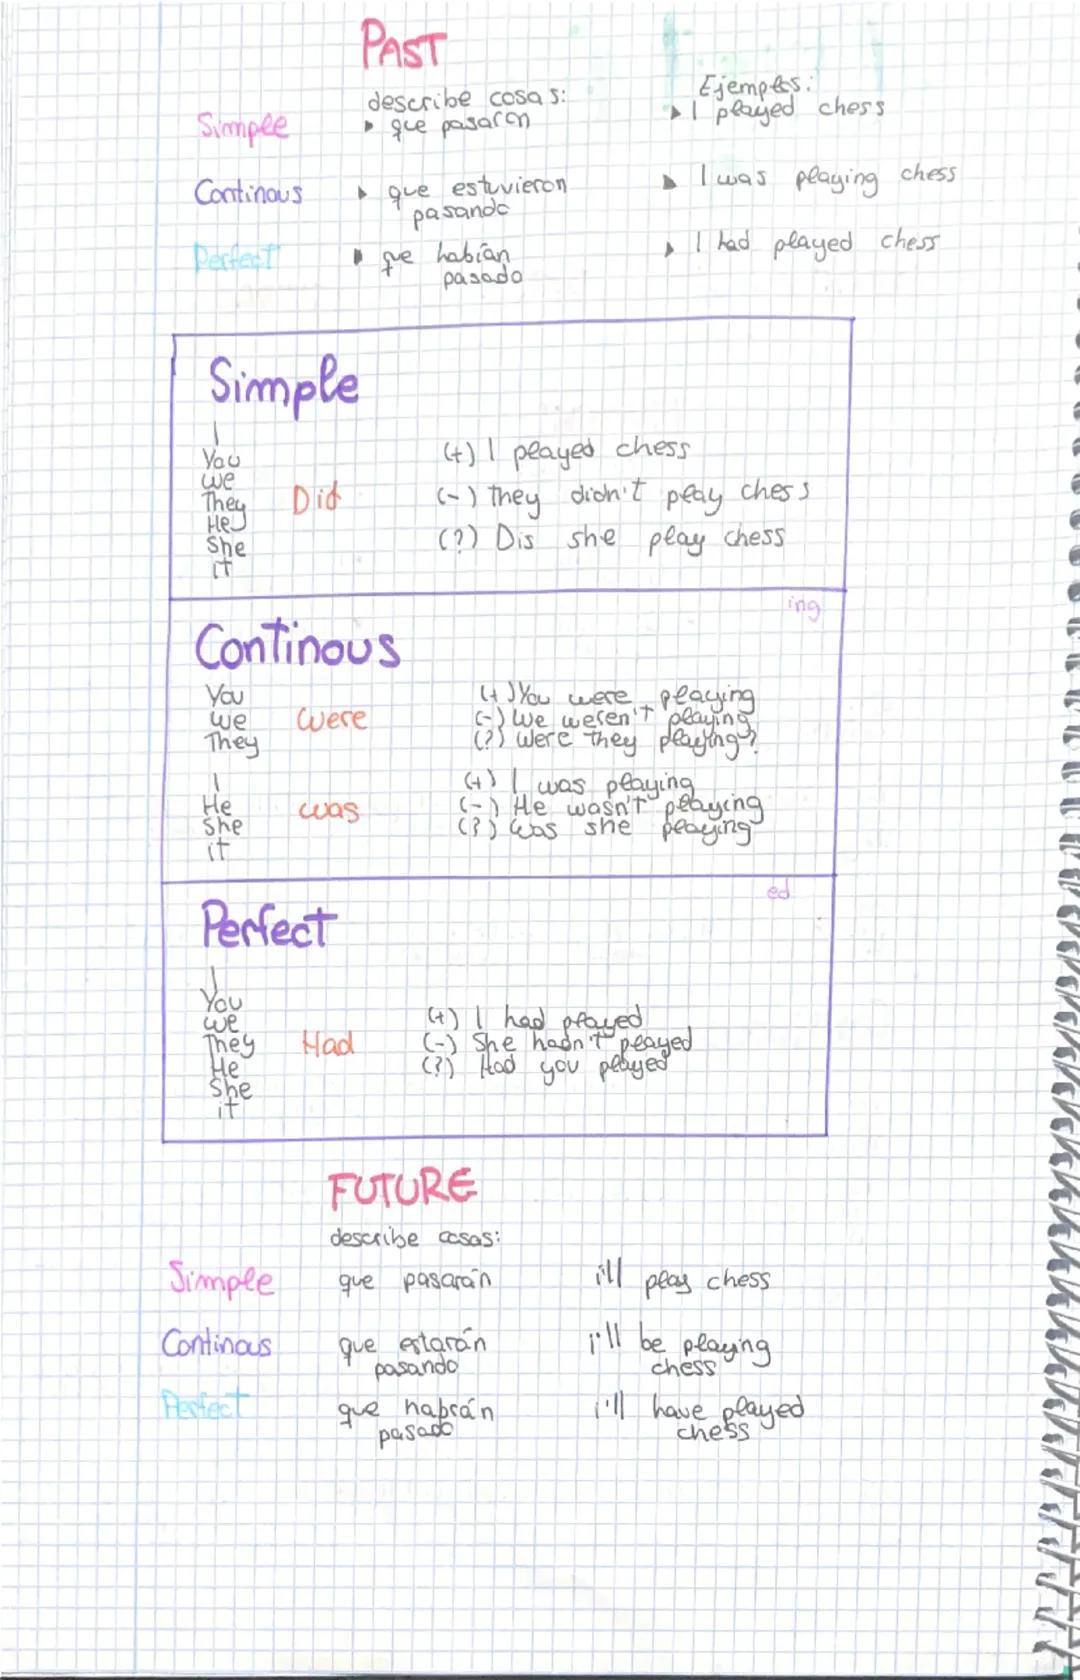 PAST
describe cosas:
Ejemplos:
Simple
▸ que pasaron
▸ I played chess
Continous
▸ que estuvieron
pasando
▸ I was playing chess
Perfect
▸ que habían
pasado
▸ I had played chess
Simple
I
You
we
They
He
She
it
Did
(+) I played chess
(-) they didn't play chess
(?) Dis she play chess
ing
Continous
You
we
They
were
(+) You were playing
(-) We weren't playing
(?) Were they playing?
I
He
She
it
was
(+) I was playing
(-) He wasn't playing
(?) Was she playing
ed
Perfect
I
You
we
They
He
She
it
Had
(+) I had played
(-) She hadn't played
(?) Had you played
FUTURE
describe cosas:
Simple
que pasarán
i'll play chess
Continous
que estarán
pasando
i'll be playing
chess
Perfect
que habrán
pasado
i'll have played
chess